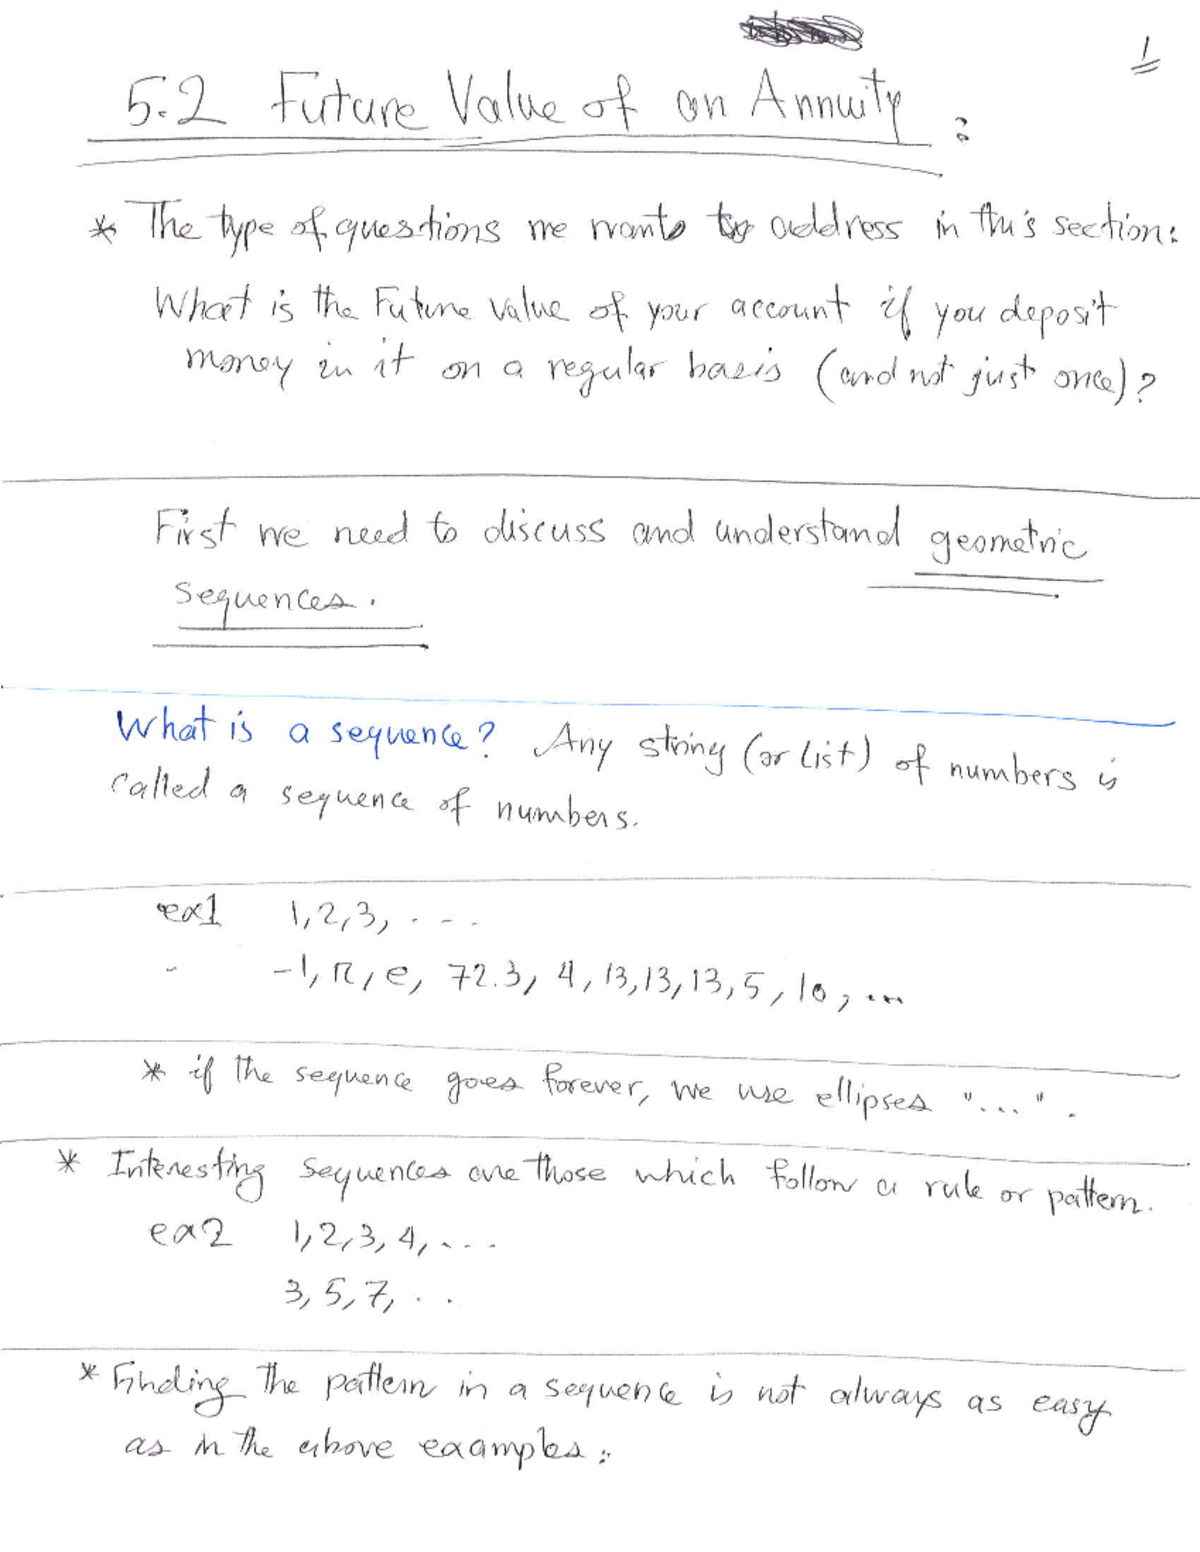 1
5.2 Future Value of an Annuity :
* The type of questions we wants to address in this section:
What is the Future Value of your account if you deposit
money in it on a regular basis (and not just once)?
First we need to discuss and understand geometric
sequences.
What is a sequence? Any string (or list) of numbers is
called a sequence of numbers.
ex1 1, 2, 3, . . .
-1, π, e, 72.3, 4, 13, 13, 13, 5, 10, ...
* if the sequence goes forever, we use ellipses "...".
* Interesting sequences are those which follow a rule or pattern.
ex2 1, 2, 3, 4, ...
3, 5, 7, . .
* Finding the pattern in a sequence is not always as easy
as in the above examples: